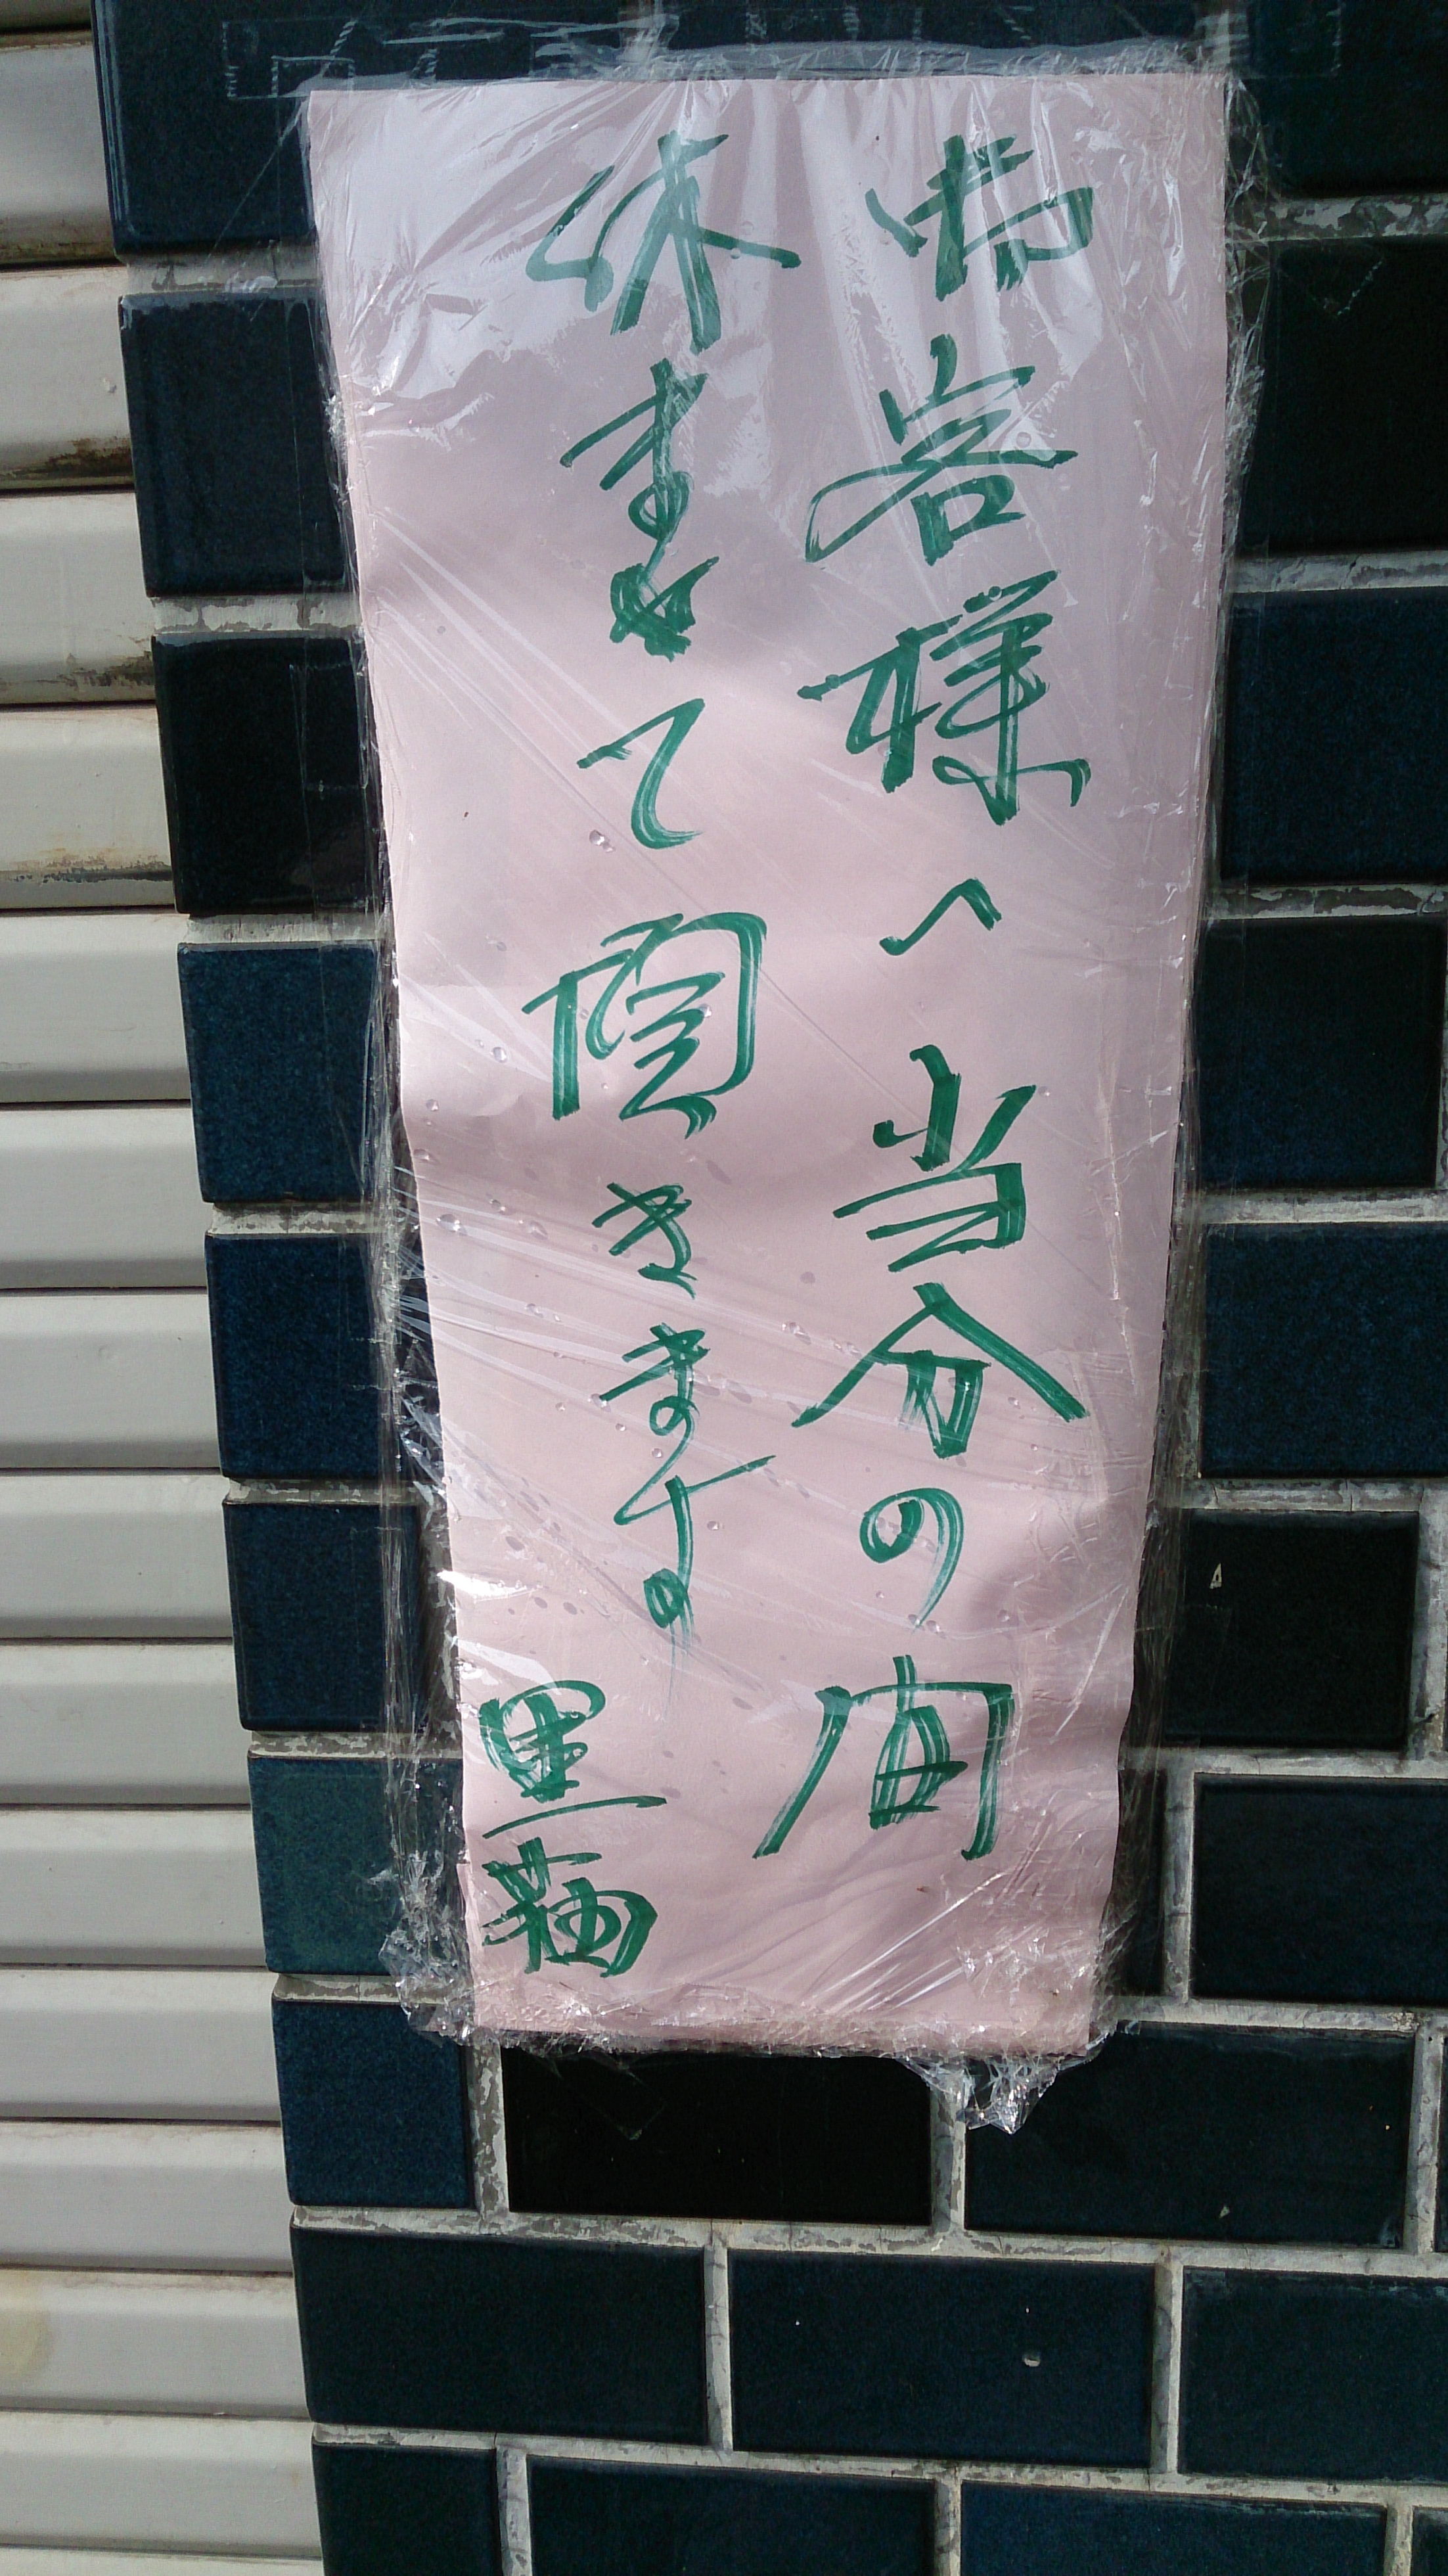 お客様へ 当分の間
休ませて頂きます。
黒猫